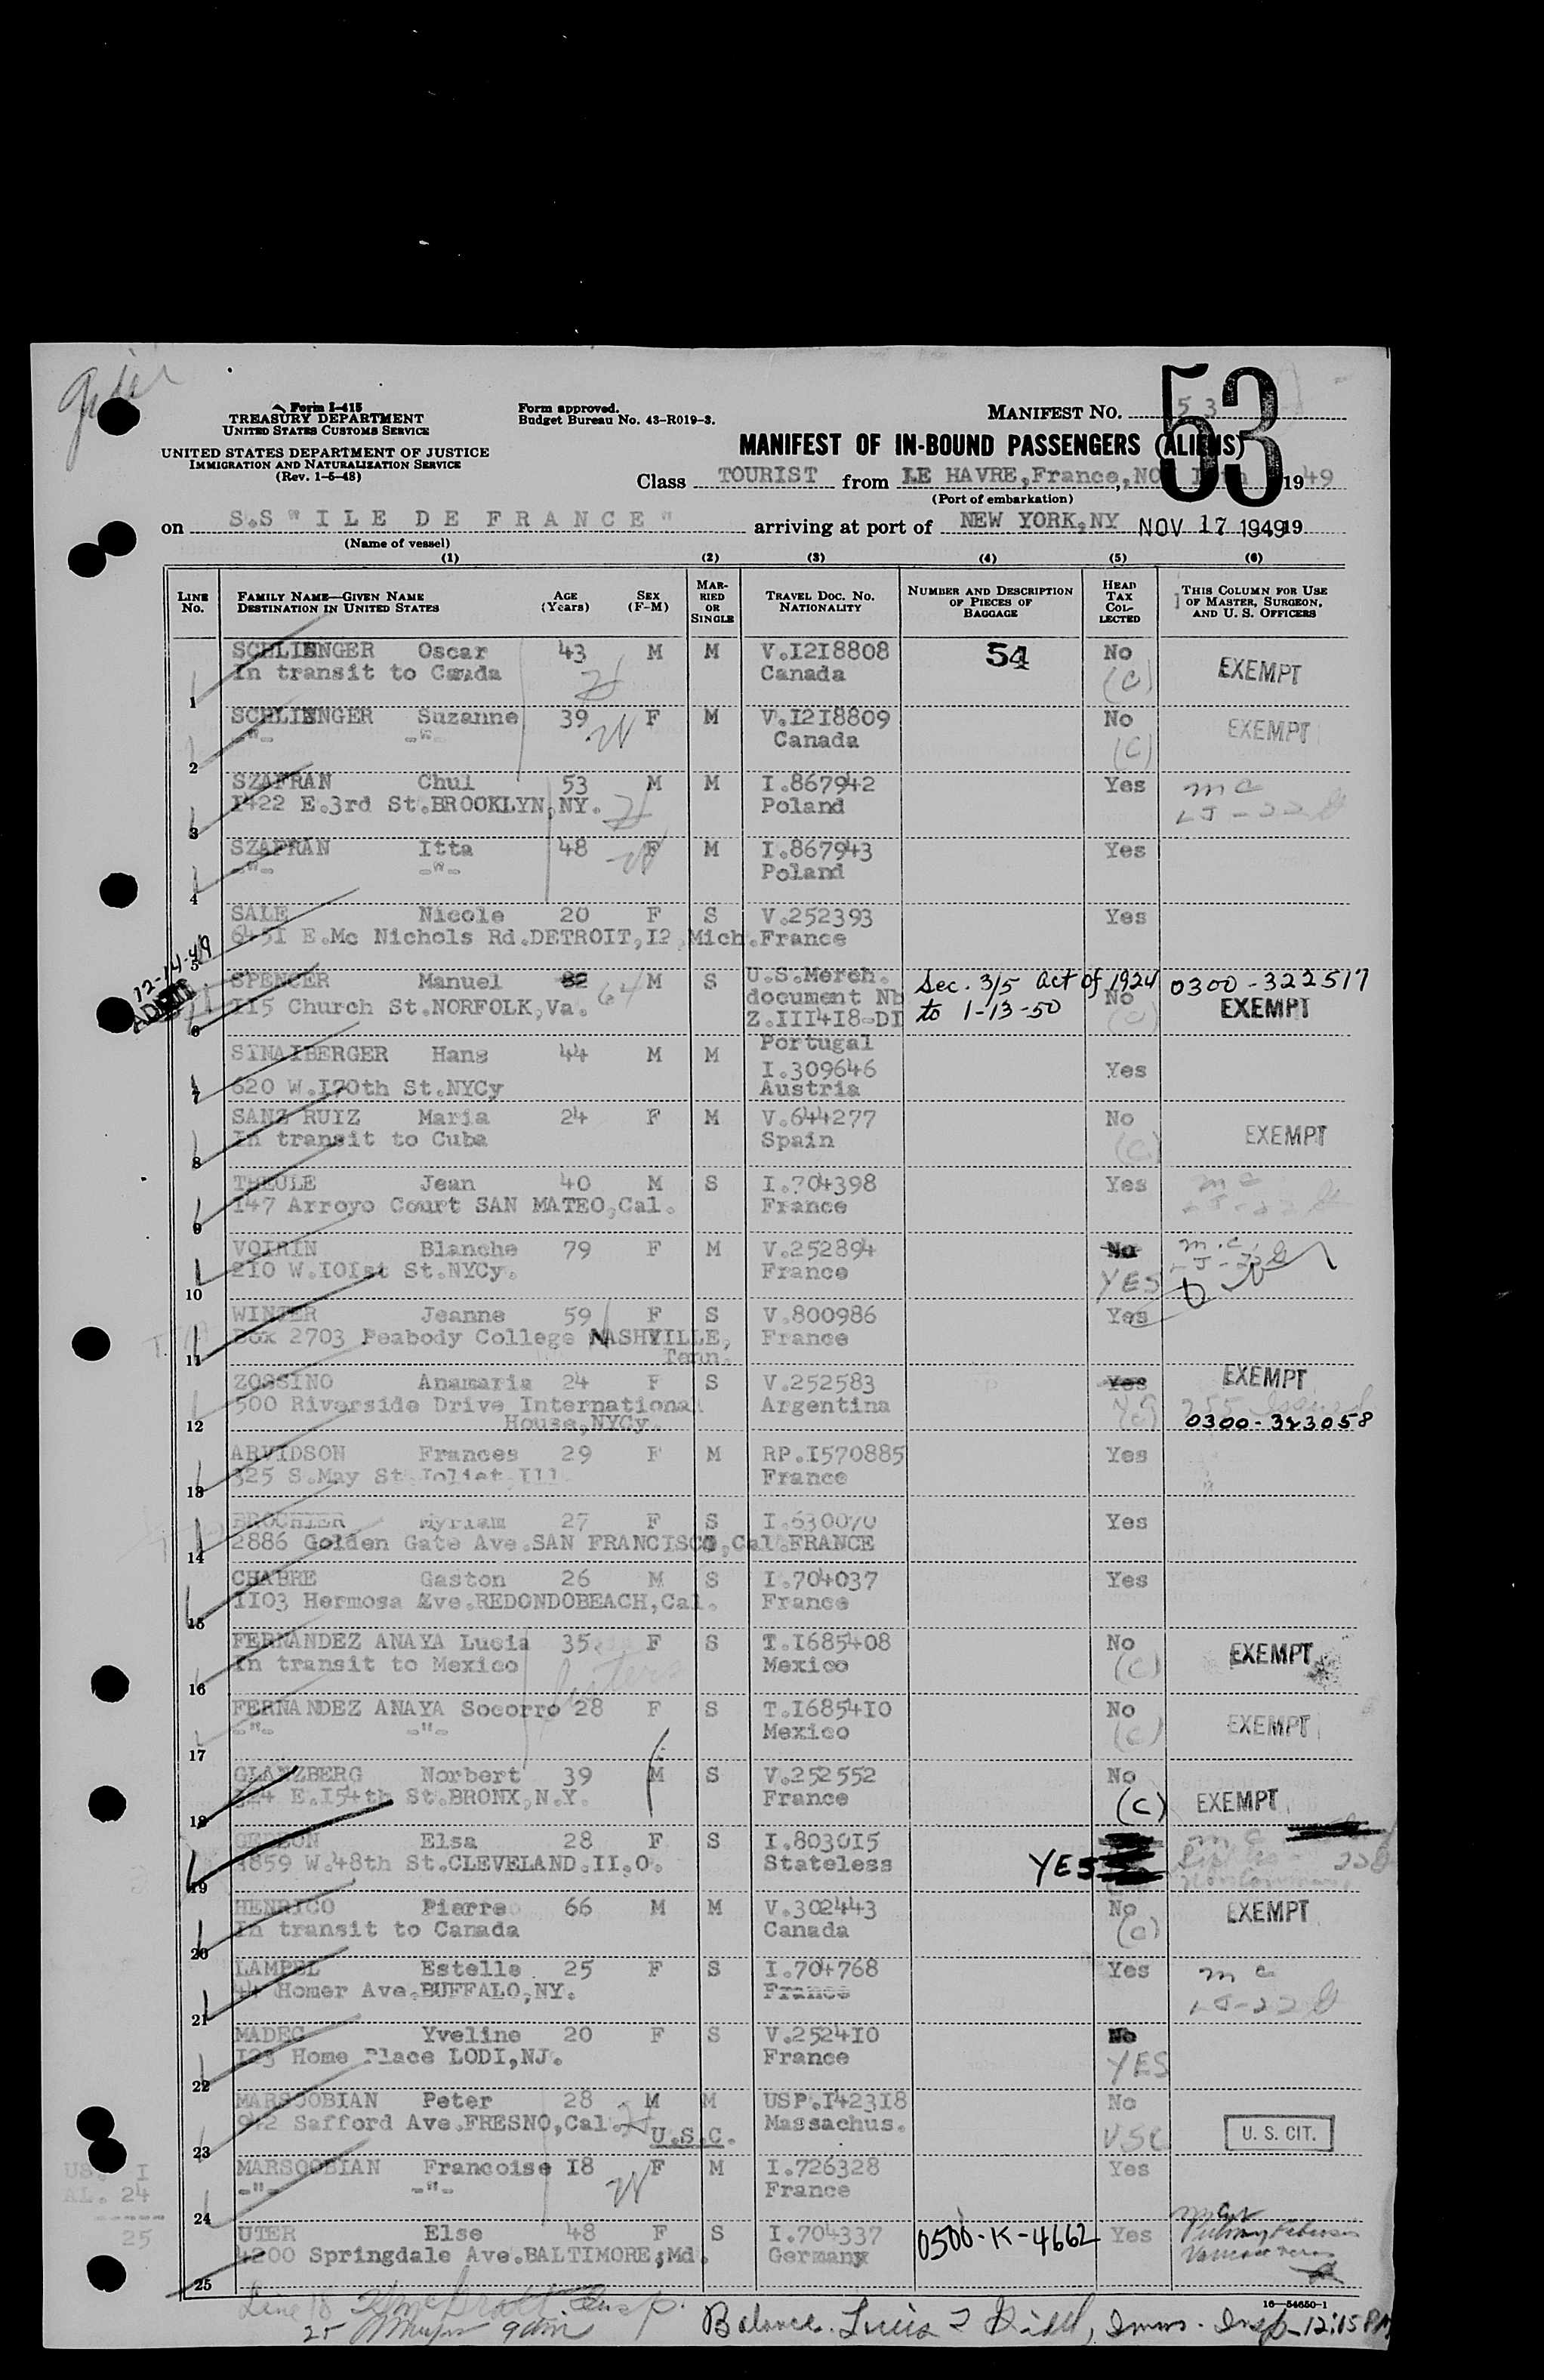 Form I-415
TREASURY DEPARTMENT
UNITED STATES CUSTOMS SERVICE
UNITED STATES DEPARTMENT OF JUSTICE
IMMIGRATION AND NATURALIZATION SERVICE
(Rev. 1-5-48)
Form approved.
Budget Bureau No. 43-R019-3.
MANIFEST NO. 53
53
MANIFEST OF IN-BOUND PASSENGERS (ALIENS)
Class TOURIST from LE HAVRE,France, 1949
(Port of embarkation)
on S.S "ILE DE FRANCE" arriving at port of NEW YORK,NY NOV 17 1949 19
(Name of vessel)
(1) (2) (3) (4) (5) (6)
LINE No. FAMILY NAME—GIVEN NAME DESTINATION IN UNITED STATES AGE (Years) SEX (F-M) MARRIED OR SINGLE TRAVEL DOC. No. NATIONALITY NUMBER AND DESCRIPTION OF PIECES OF BAGGAGE HEAD TAX COLLECTED THIS COLUMN FOR USE OF MASTER, SURGEON, AND U. S. OFFICERS
1 SCHLIENGER Oscar 43 M M V.I2I8808 54 No EXEMPT
In transit to Canada Canada (C)
2 SCHLIENGER Suzanne 39 F M V.I2I8809 No EXEMPT
-"- -"- W Canada (C)
3 SZAFRAN Chul 53 M M I.867942 Yes
I422 E.3rd St.BROOKLYN,NY. Poland
4 SZAFRAN Itta 48 F M I.867943 Yes
-"- -"- W Poland
5 SALE Nicole 20 F S V.252393 Yes
645I E.Mc Nichols Rd.DETROIT,I2,Mich.France
12-14-49
6 SPENCER Manuel 64 M S U.S.Merch. Sec. 3/5 Act of 1924 0300-322517
II5 Church St.NORFOLK,Va. document Nb to 1-13-50 No EXEMPT
Z.III4I8-DI
Portugal
7 SINAIBERGER Hans 44 M M I.309646 Yes
620 W.I70th St.NYCy Austria
8 SANZ RUIZ Maria 24 F M V.644277 No EXEMPT
In transit to Cuba Spain (C)
9 THEULE Jean 40 M S I.704398 Yes
I47 Arroyo Court SAN MATEO,Cal. France
10 VOIRIN Blanche 79 F M V.252894 No
2I0 W.I0Ist St.NYCy. France YES
11 WINTER Jeanne 59 F S V.800986 Yes
Box 2703 Peabody College NASHVILLE, France
Tenn.
12 ZOSSINO Anamaria 24 F S V.252583 Yes EXEMPT
500 Riverside Drive International Argentina (C)
House,NYCy. 0300-323058
13 ARVIDSON Frances 29 F M RP.I570885 Yes
325 S.May St Joliet Ill France
14 BROCHIER Myriam 27 F S I.630070 Yes
2886 Golden Gate Ave.SAN FRANCISCO,Cal.FRANCE
15 CHABRE Gaston 26 M S I.704037 Yes
II03 Hermosa Ave.REDONDOBEACH,Cal. France
16 FERNANDEZ ANAYA Lucia 35 F S T.I685408 No EXEMPT
In transit to Mexico sisters Mexico (C)
17 FERNANDEZ ANAYA Socorro 28 F S T.I6854I0 No EXEMPT
-"- -"- Mexico (C)
18 GLANZBERG Norbert 39 M S V.252552 No
324 E.I54th St.BRONX,N.Y. France (C) EXEMPT
19 Elsa 28 F S I.8030I5
W.48th St.CLEVELAND.II.O. Stateless YES
20 HENRICO Pierre 66 M M V.302443 No EXEMPT
In transit to Canada Canada (C)
21 LAMPEL Estelle 25 F S I.704768 Yes
44 Homer Ave.BUFFALO,NY. France
22 MADEC Yveline 20 F S V.2524I0 No
I23 Home Place LODI,NJ. France YES
23 MARSOOBIAN Peter 28 M M USP.I423I8 No
942 Safford Ave.FRESNO,Cal. U.S.C. Massachus. USC U. S. CIT.
24 MARSOOBIAN Francoise I8 F M I.726328 Yes
-"- -"- W France
US. I
AL. 24
25
25 UTER Else 48 F S I.704337 0500-K-4662 Yes
4200 Springdale Ave.BALTIMORE,Md. Germany
16-54650-1
Line 18 Insp.
25 9am Balance. Imm. Insp-12:15 PM